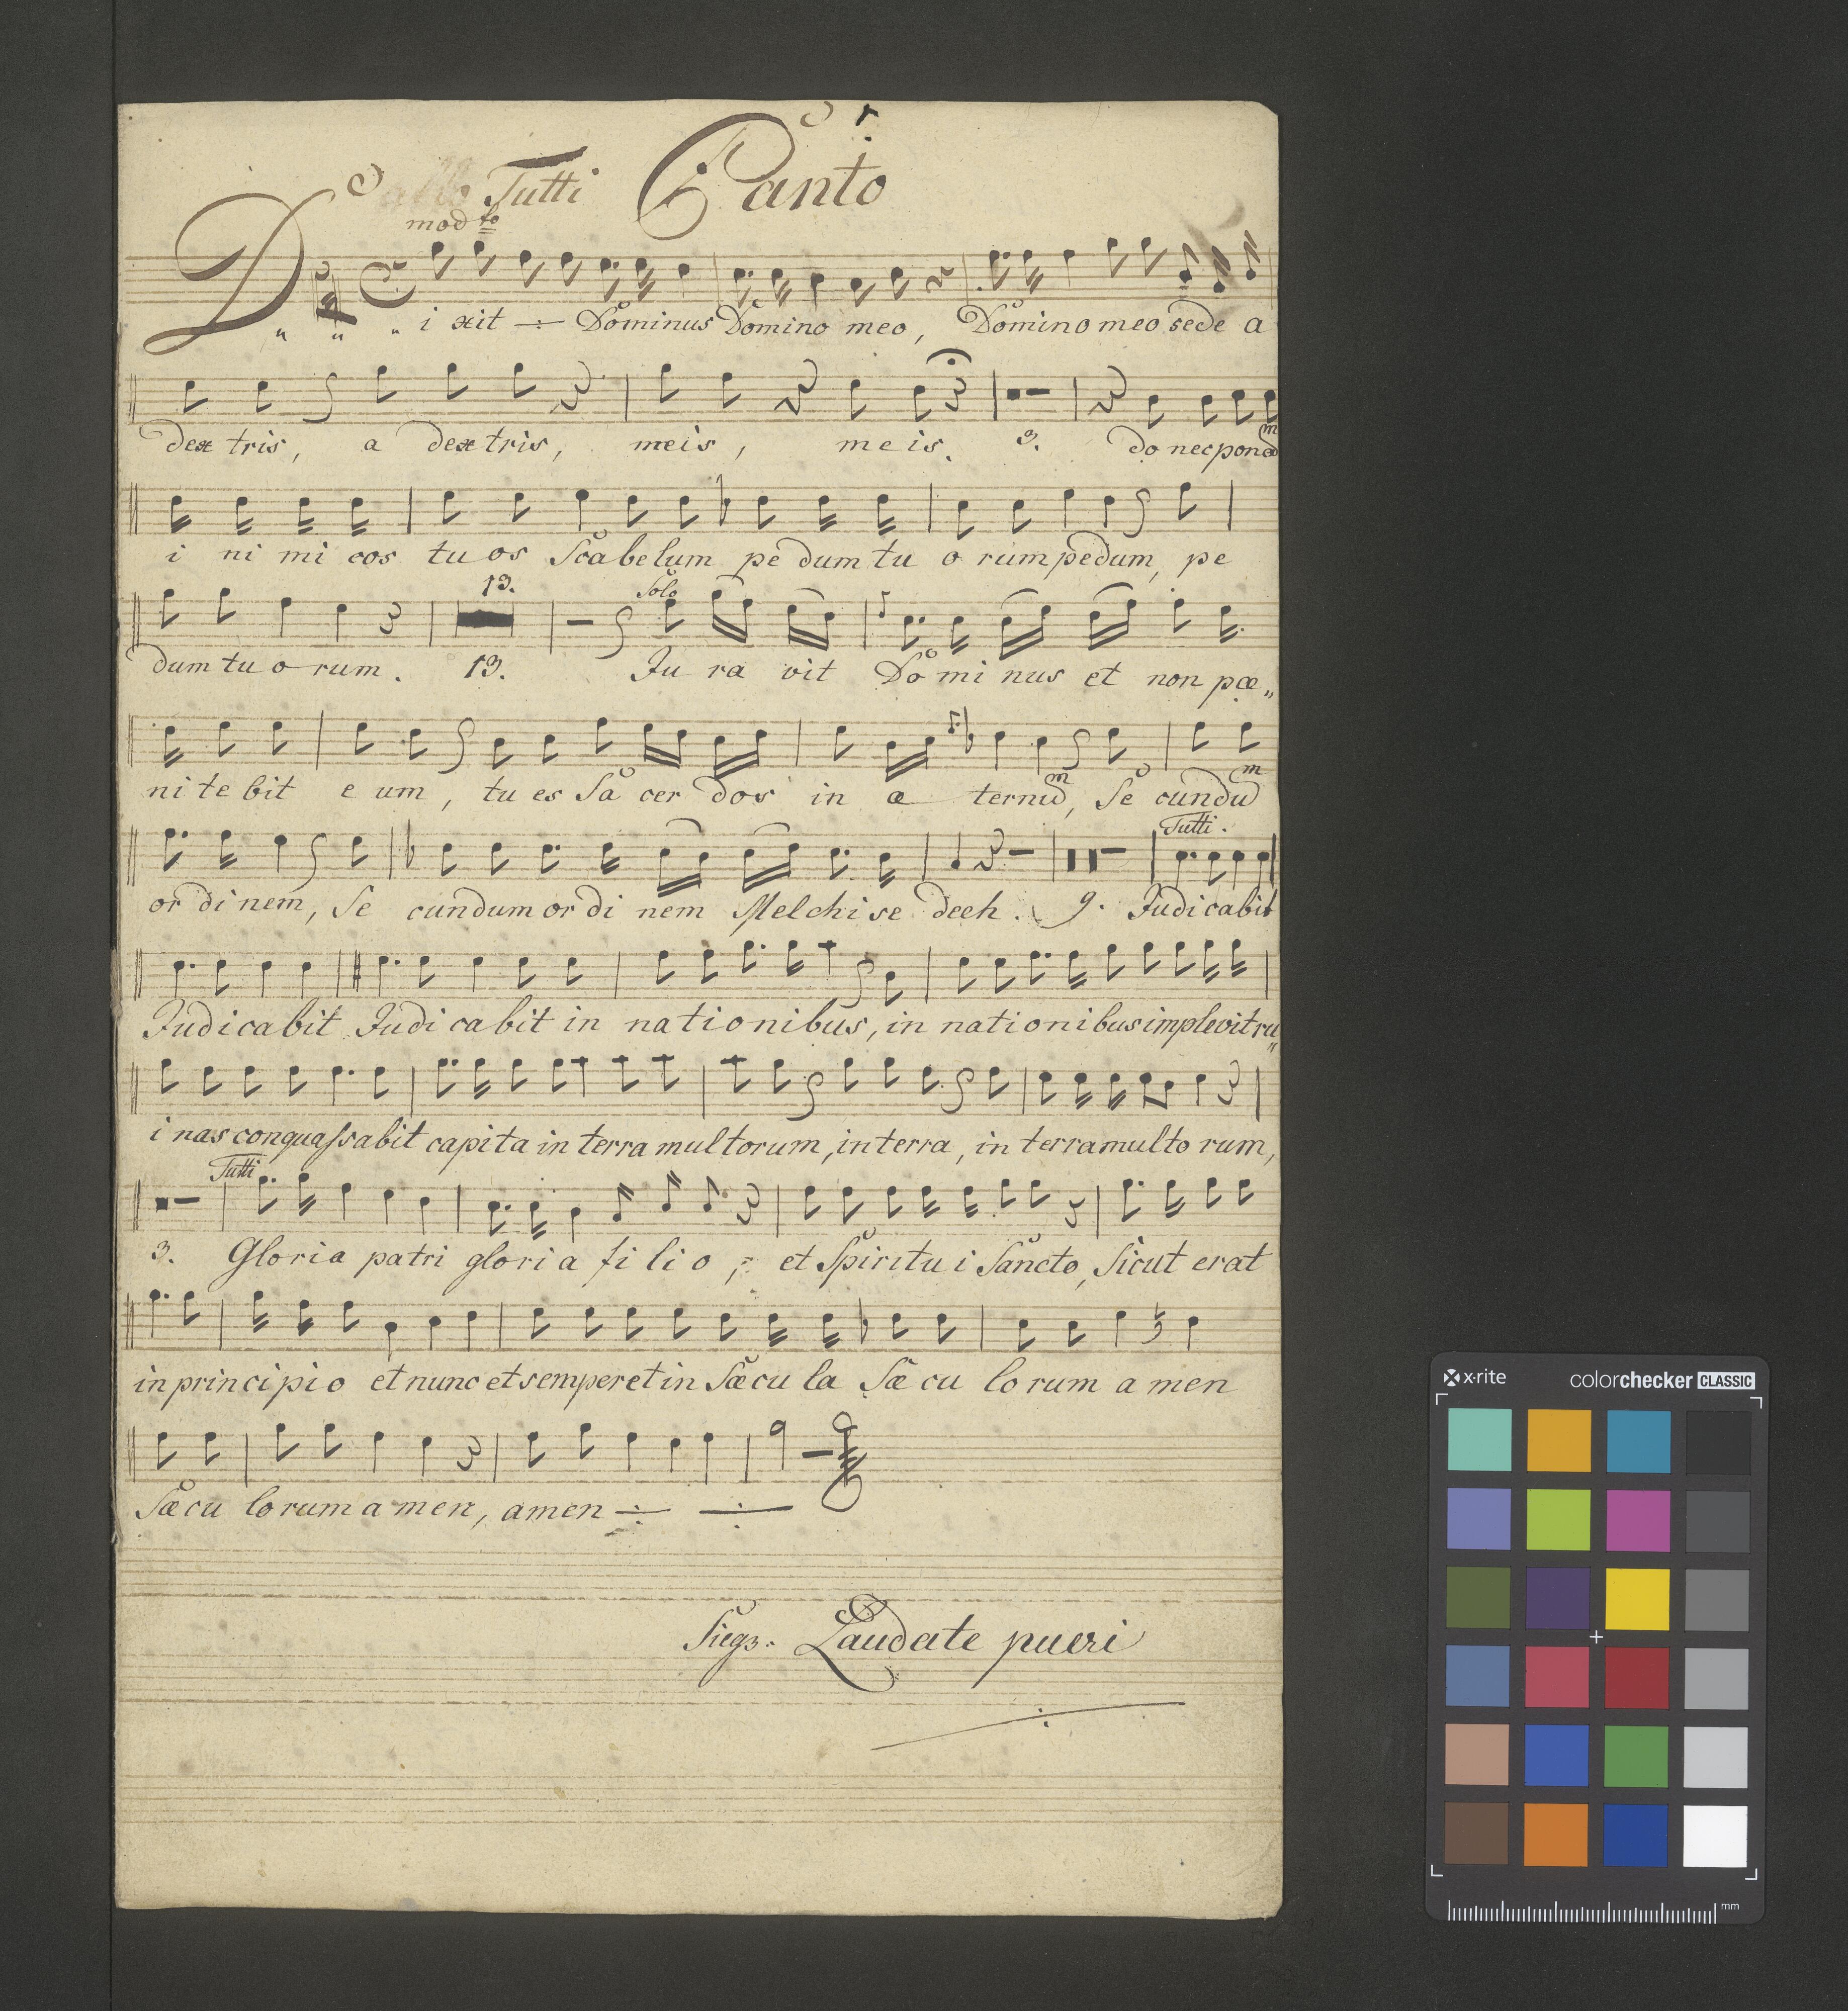 Tutti Canto
modto
Dixit Dominus Domino meo, Domino meo sede a
dextris, a dextris, meis, meis. 3. donec ponam
inimicos tuos Scabelum pedum tuorum pedum, pe
13.
Solo
dum tuorum. 13. Juravit Dominus et non pœ„
nitebit eum, tu es Sacerdos in æternum, Secundum
Tutti.
ordinem, Secundum ordinem Melchisedech. 9. Judicabit
Judicabit Judicabit in nationibus, in nationibus implevit ru„
inas conquaſsabit capita in terra multorum, in terra, in terra multorum,
Tutti
3. Gloria patri gloria filio, et Spiritui Sancto, Sicut erat
in principio et nunc et semper et in Sæcula Sæculorum amen
Sæculorum amen, amen
Siegz. Laudate pueri
x·rite colorchecker CLASSIC
mm